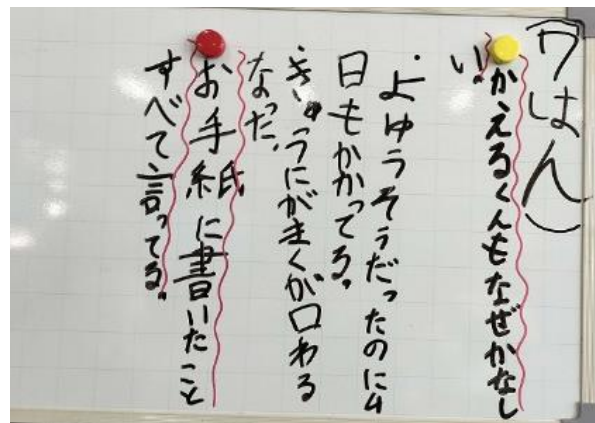 7はん
かえるくんもなぜかなし
い。
・よゆうそうだったのに4
日もかかってる。
きゅうにがまくが口わる
なった。
お手紙に書いたこと
すべて言ってる。